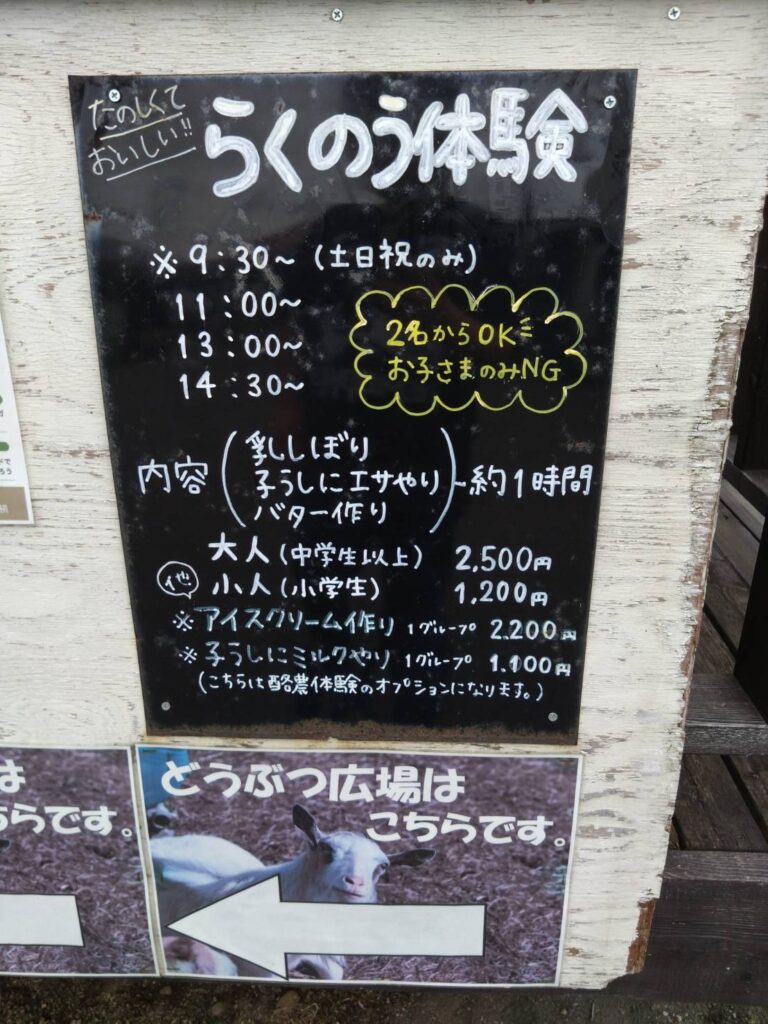 たのしくて
おいしい!!
らくのう体験
※9:30~ (土日祝のみ)
11:00~
13:00~
14:30~
2名からOK
お子さまのみNG
内容(乳しぼり
子うしにエサやり
バター作り)-約1時間
大人(中学生以上) 2,500円
他
小人(小学生) 1,200円
※アイスクリーム作り 1グループ 2,200円
※子うしにミルクやり 1グループ 1,100円
(こちらは酪農体験のオプションになります。)
どうぶつ広場は
こちらです。
は
ちらです。